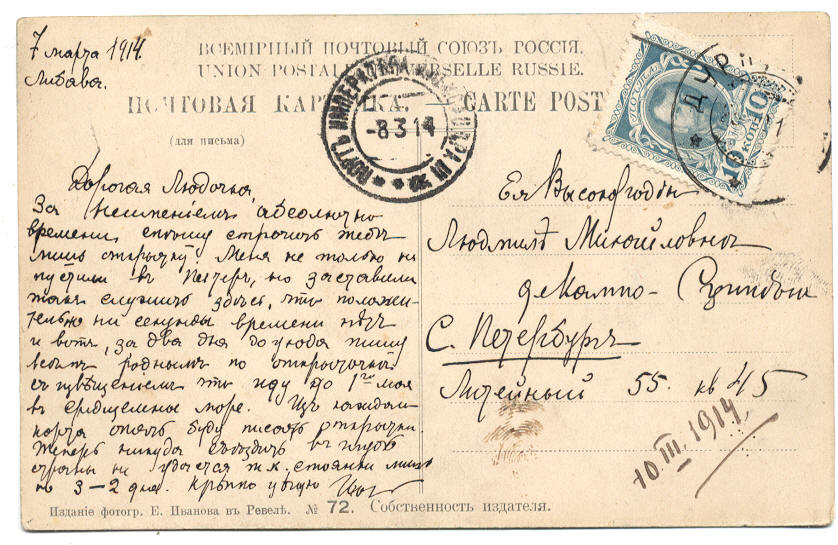 7 марта 1914.
Либава.
ВСЕМІРНЫЙ ПОЧТОВЫЙ СОЮЗЪ РОССІЯ.
UNION POSTALE UNIVERSELLE RUSSIE.
ПОЧТОВАЯ КАРТОЧКА. — CARTE POST
(для письма)
ПОРТЪ ИМПЕРАТОРА АЛЕКСАНДРА III
-8 3 14
10 КОП 10
Дорогая Людочка,
За неимѣніемъ абсолютно
времени, спѣшу строчить тебѣ
лишь открытку. Меня не только не
пустили въ Питеръ, но заставили
такъ служить здѣсь, что положи-
тельно ни секунды времени нѣтъ
и вотъ, за два дня до ухода пишу
всѣмъ роднымъ по открыточкѣ
съ извѣщеніемъ что иду до 1го мая
въ Средиземное море. Изъ каждаго
порта опять буду писать открытки.
Теперь никуда съѣздить въ глубь
страны не удастся т.к. стоянки лишь
по 3–2 дня. Крѣпко цѣлую
Ея Высокородію
Людмилѣ Михайловнѣ
де Кампо - Сципіонъ
С. Петербургъ
Литейный 55. кв 45
10 III 1914.
Изданіе фотогр. Е. Иванова въ Ревелѣ. № 72. Собственность издателя.